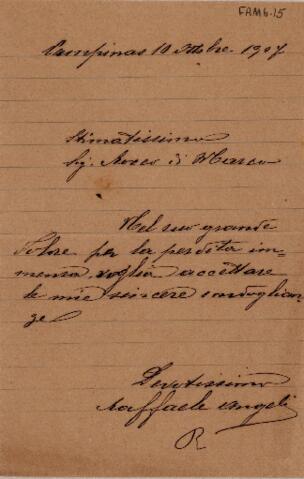 FAM6-15
Campinas 10 ottobre 1907
Stimatissimo
Sig. Rocco di Marco
Nel suo grande
dolore per la perdita im=
mensa voglia accettare
le mie sincere condoglian
ze
Devotissimo
Raffaele Angeli
R